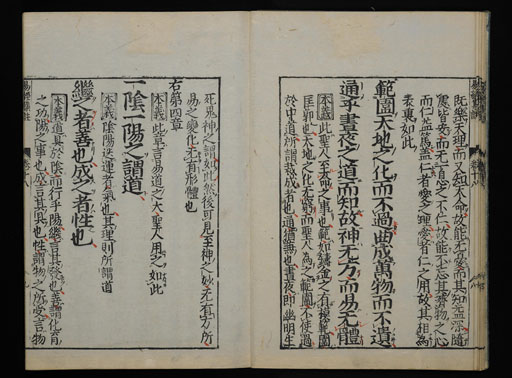 既樂天理而又知天命故能无憂而其知益深隨
處皆安而无一息之不仁故能不忘其濟物之心
而仁益篤蓋仁者愛之理愛者仁之用故其相為
表裏如此
範圍天地之化而不過曲成萬物而不遺
通乎晝夜之道而知故神无方而易无體
本義此聖人至命之事也範如鑄金之有模範圍
匡郭也天地之化无窮而聖人為之範圍不使過
於中道所謂裁成者也通猶兼也晝夜即幽明生
死鬼神之謂如此然後可見至神之妙无有方所
易之變化无有形體也
右第四章
本義此章言易道之大聖人用之如此
一陰一陽之謂道
本義陰陽迭運者氣也其理則所謂道
繼之者善也成之者性也
本義道具於陰而行乎陽繼言其發也善謂化育
之功陽之事也成言其具也性謂物之所受言物